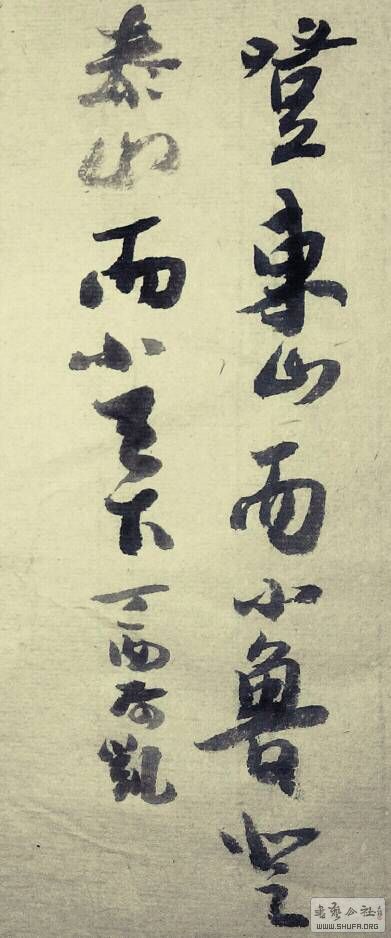 登東山而小魯登
泰山而小天下 丁酉 凱
書藝公社
WWW.SHUFA.ORG